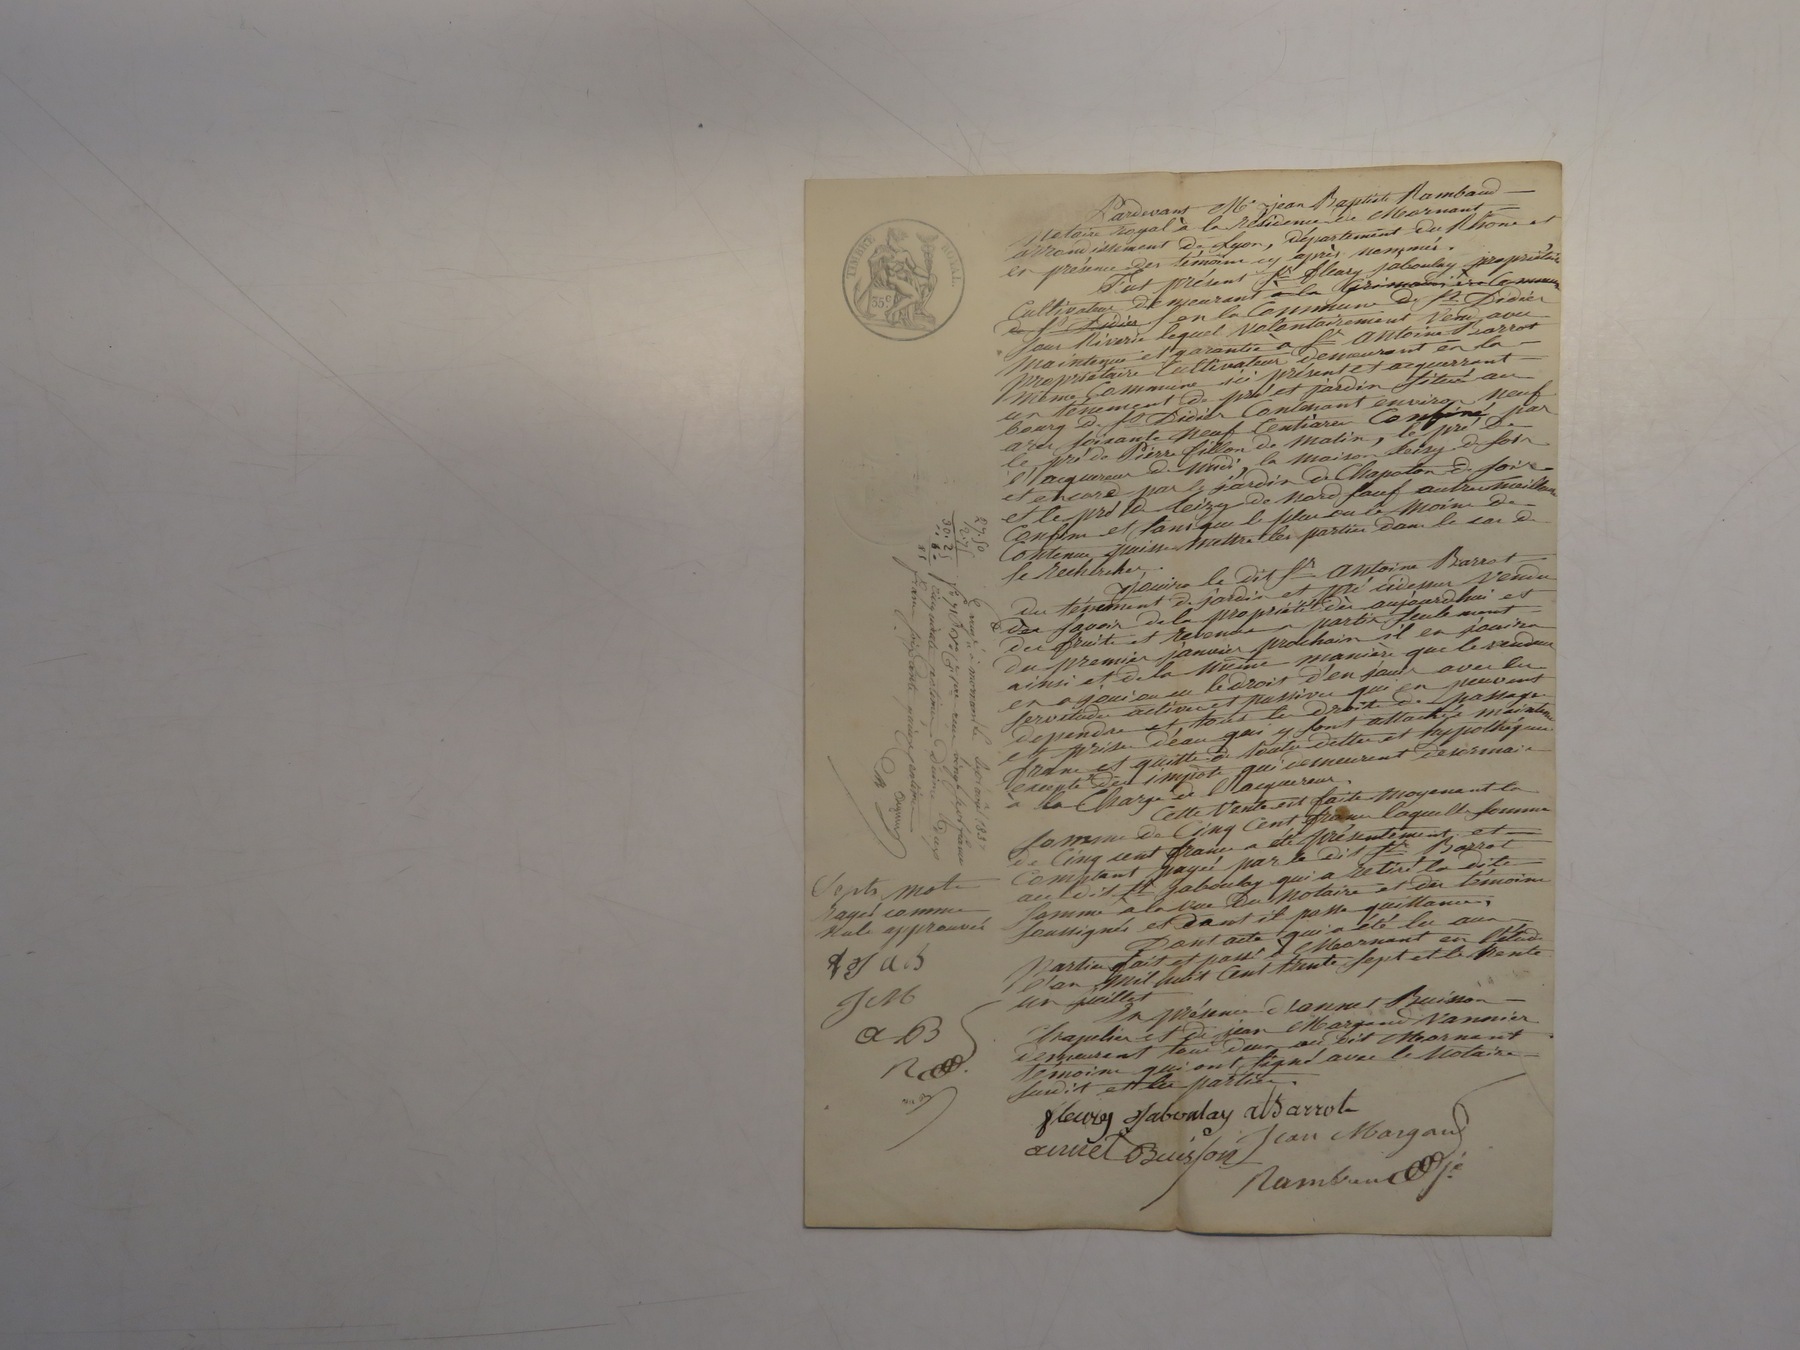 TIMBRE ROYAL
35 c
Pardevant Me jean Baptiste Rambaud
Notaire royal à la résidence de Mornant
arrondissement de Lyon, département du Rhône et
en présence des témoins cy après nommés.
S'est présent Sr fleury jaboulay propriétaire
Cultivateur demeurant à la Commune
de St Didier en la Commune de St Didier
sous Riverie lequel volontairement vend avec
maintenue et garantie a Sr antoine Barrot
propriétaire Cultivateur demeurant en la
même Commune ici présent et acquerrant
un tenement de pré et jardin situé au
bourg de St Didier Contenant environ neuf
ares soisante neuf Centiares Confiné par
le pré de Pierre fillon de matin, le pré de
l'acquereur de midi, la maison Seizy de soir
et encore par le jardin de Chapoton de soir
et le pré du Seizy de nord sauf autres meilleurs
Confins et sans que le plus ou le moins de
Contenue puisse nuire les parties dans le cas de
se rechercher.
jouira le dit Sr antoine Barrot
du tènement de jardin et pré cidessus vendu
des savoir de la propriété dès aujourdhui et
des fruits et revenus a partir seulement
du premier janvier prochain il en jouira
ainsi et de la même manière que le vendeur
en a joui ou eu le droit d'en jouir avec les
servitudes actives et passives qui en peuvent
dependre et tous les droits de passage
et prise d'eau qui y sont attachés maintenu
franc et quitte de toutes dettes et hypothèques
excepté des impots qui demeurent desormais
a la Charge de l'acquereur.
Cette vente est faite moyenant la
somme de Cinq Cent francs laquelle somme
de Cinq cent francs a été présentement et
Comptant payée par le dit Sr Barrot
au dit Sr jaboulay qui a retiré la dite
somme a la vue du Notaire et des témoins
soussignés et dont il passe quittance.
Dont acte qui a été lu aux
Parties fait et passé à Mornant en l'étude
l'an mil huit Cent trente sept et le trente
un juillet
En présence d'annet Buisson
Chapelier et de jean Margaud vannier
demeurant tous deux au dit Mornant
témoins qui ont signé avec le Notaire
susdit et les parties.
fleury Jaboulay aBarrot
annet Buisson Jean Margaud
Rambaud
Septs mots
rayés comme
nuls approuvés
fJ aB
JM
aB
R
27.50
2.75
30.25